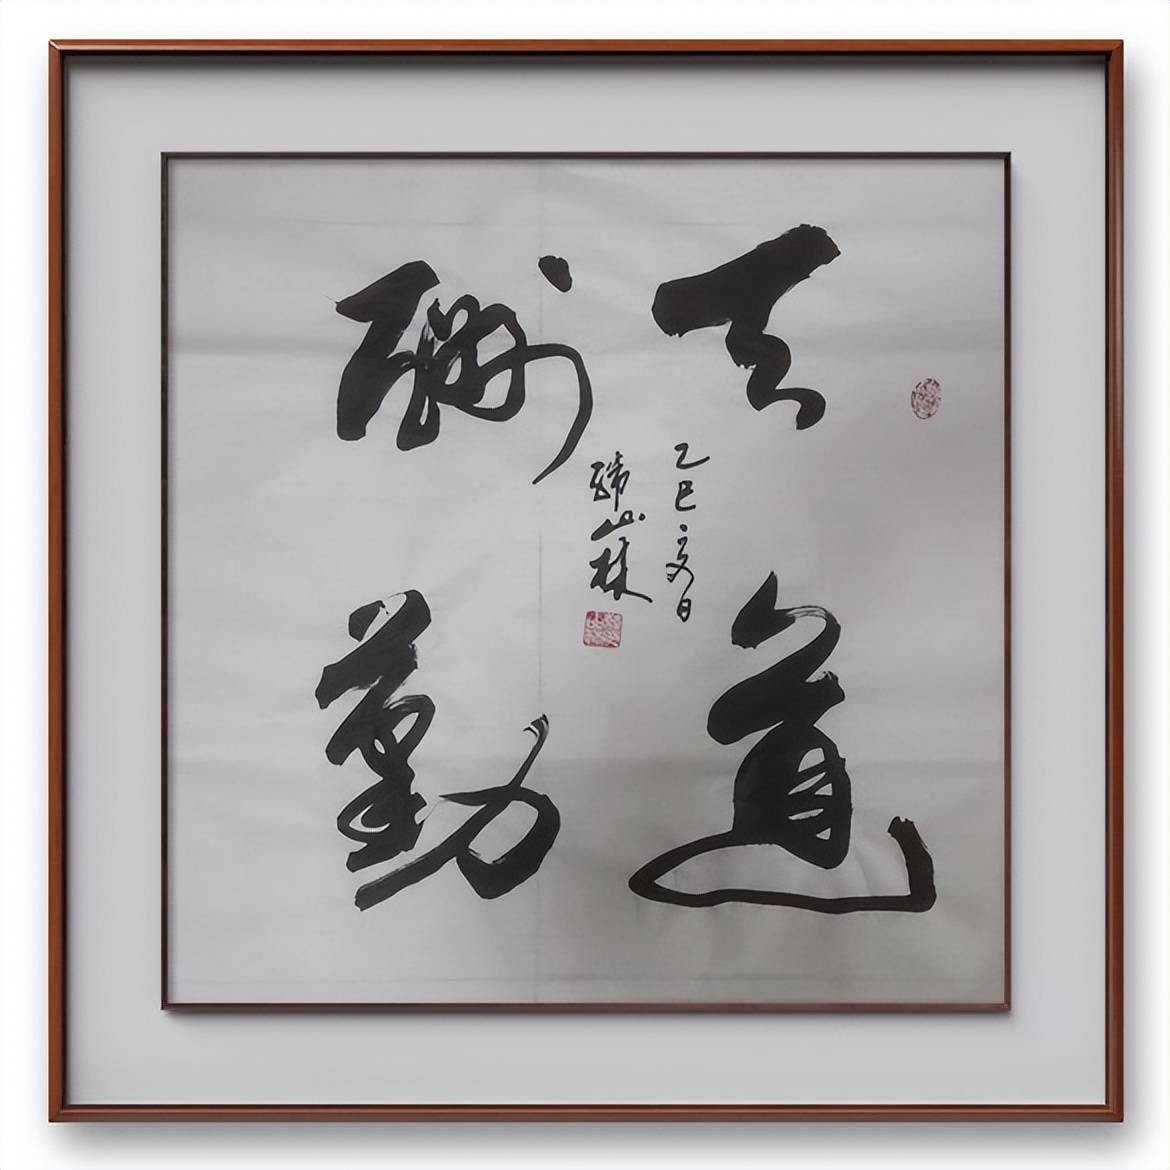 天道
酬勤
乙巳夏日
山林